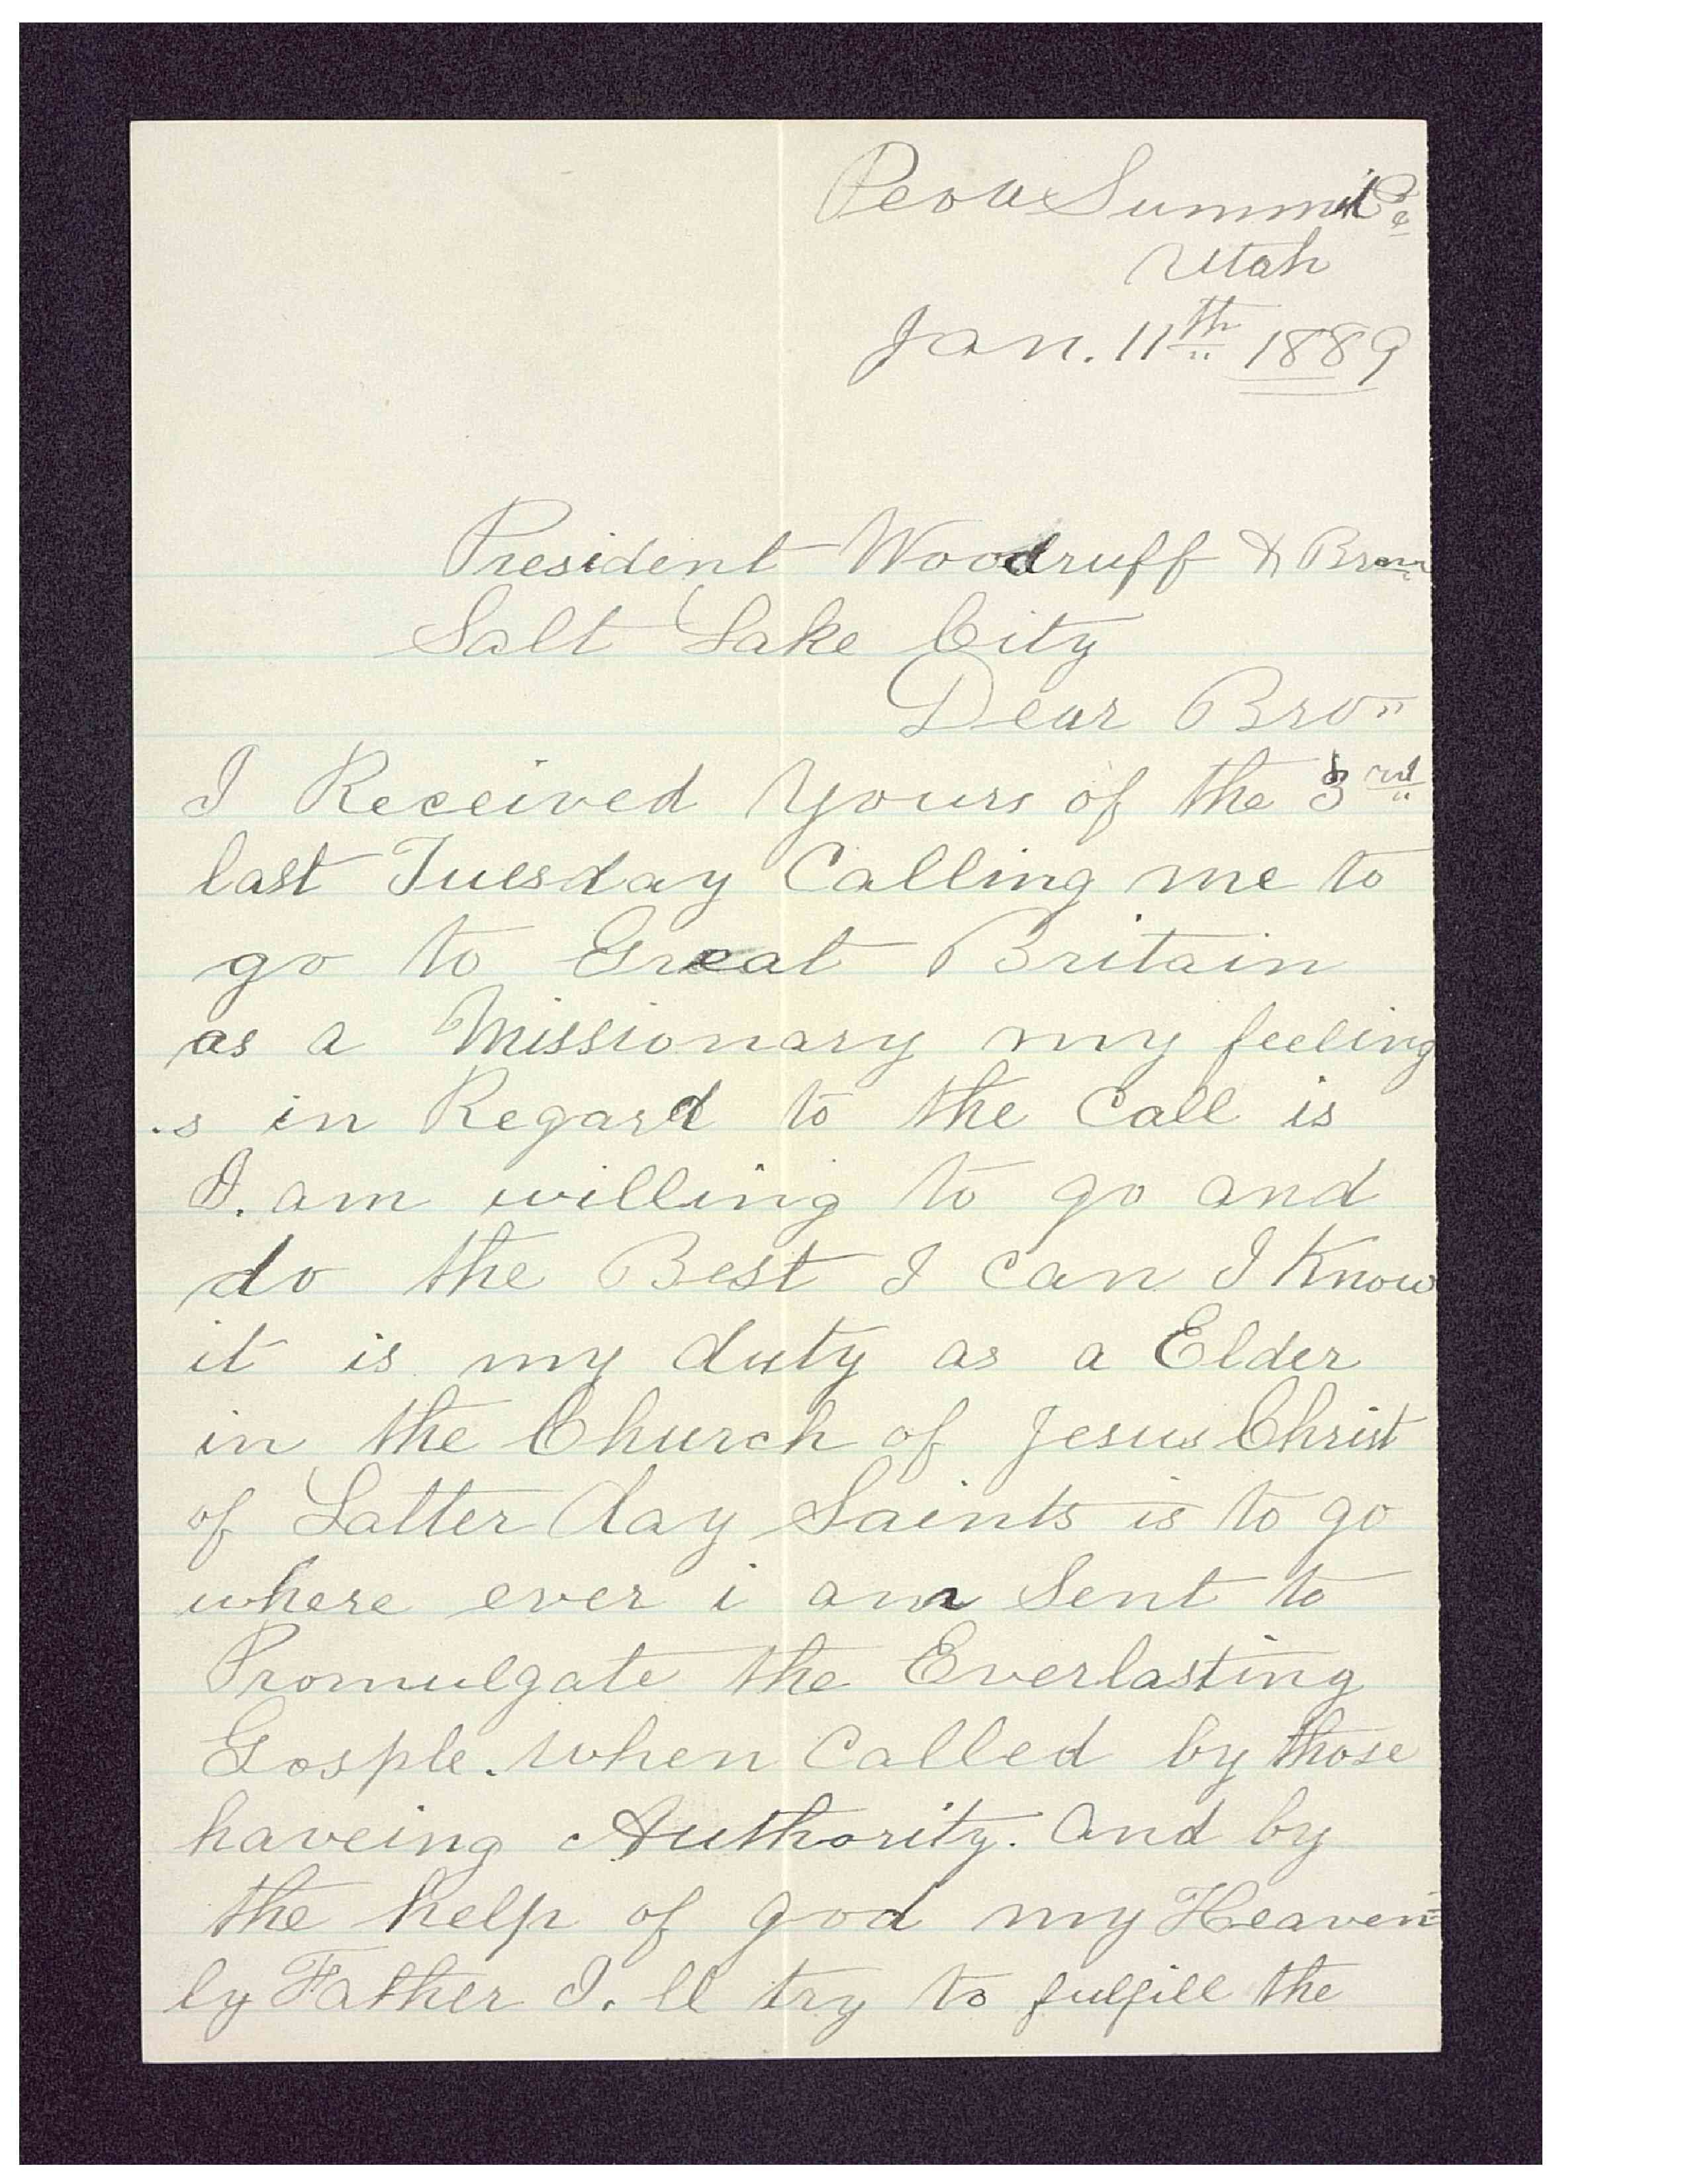 Peoa Summit Co
Utah
Jan. 11th 1889
President Woodruff & Bro
Salt Lake City
Dear Bro
I Received yours of the 3rd
last Tuesday Calling me to
go to Great Britain
as a Missionary my feeling
.s in Regard to the Call is
I. am willing to go and
do the Best I can I Know
it is my duty as a Elder
in the Church of Jesus Christ
of Latter day Saints is to go
where ever i am Sent to
Promulgate the Everlasting
Gosple. when Called by those
haveing Authority. and by
the help of god my Heaven=
ly Father I. ll try to fulfill the